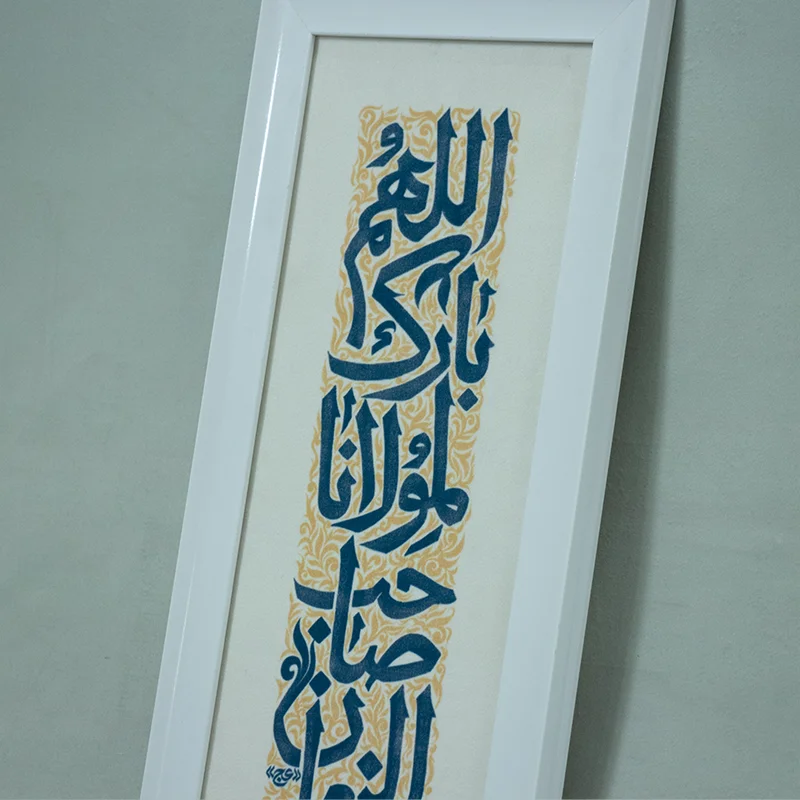 اللهُم
بارك
لمولانا
صاحب
الزمان
«عج»